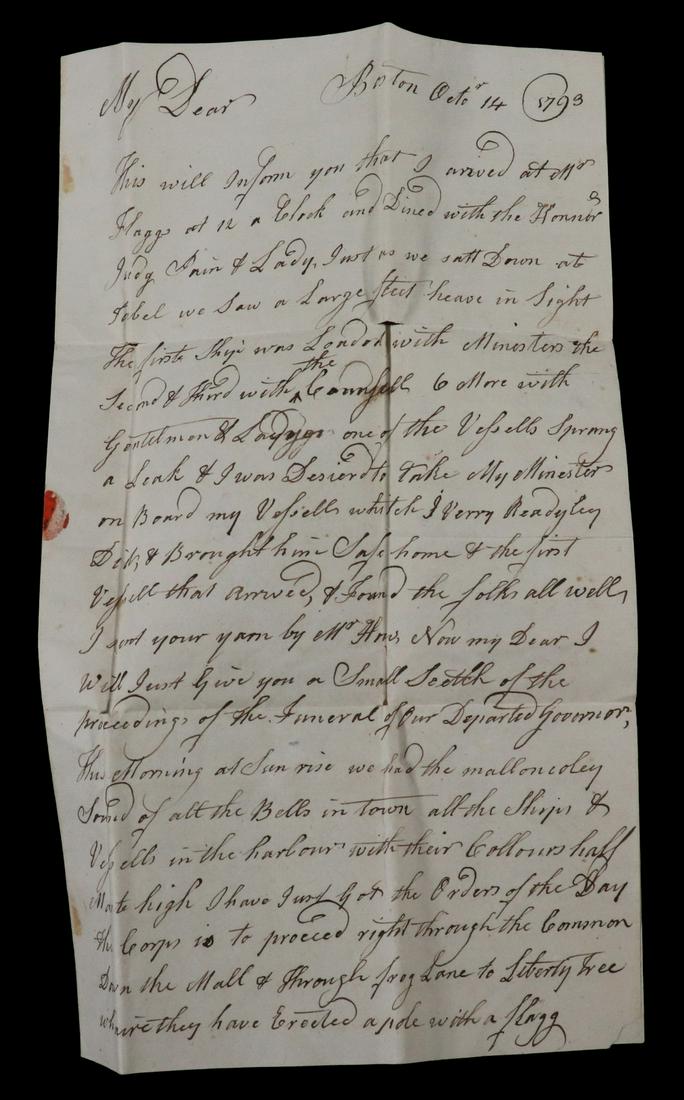 My Dear Boston Octor 14 1793
This will Inform you that I arived at Mr
Flaggs at 12 a Clock and Dined with the Honnor
Judg Pain & Lady, Just as we satt Down at
Tebel we Saw a Large fleet heave in Sight
The firste Ship was Loaded with Minesters the
Second & Third with the Counsell 6 More with
Gentelmen & Ladys one of the Vessells Sprang
a Leak & I was Desierd to take My Minester
on Board my Vessells whitch I Verry Readyley
Did, & Brought him Safe home & the first
Vessell that arrived, & Found the folks all well,
I sent your yarn by Mr How, Now my Dear I
Will Just Give you a Small Scetch of the
proceedings of the Funeral of Our Departed Governor,
This Morning at Sun rise we had the malloncoley
Sound of all the Bells in town all the Ships &
Vessells in the harbour with their Collours half
Maste high I have Just Got the Orders of the Day
the Corps is to proceed right through the Common
Down the Mall & through frog Lane to Liberty Tree
whaire they have Erected a pole with a flagg